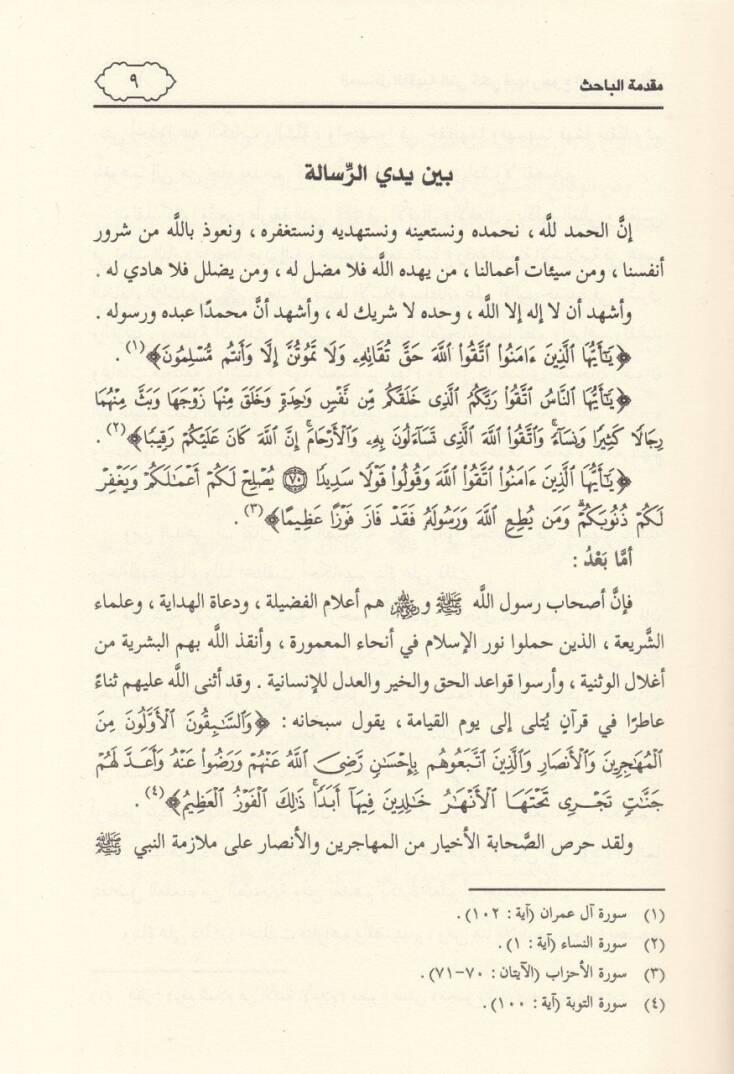 مقدمة الباحث
٩
بين يدي الرِّسالة
إنَّ الحمد للَّه ، نحمده ونستعينه ونستهديه ونستغفره ، ونعوذ باللَّه من شرور
أنفسنا ، ومن سيئات أعمالنا ، من يهده اللَّه فلا مضل له ، ومن يضلل فلا هادي له .
وأشهد أن لا إله إلا اللَّه ، وحده لا شريك له ، وأشهد أنَّ محمدًا عبده ورسوله .
﴿يَٰٓأَيُّهَا ٱلَّذِينَ ءَامَنُوا۟ ٱتَّقُوا۟ ٱللَّهَ حَقَّ تُقَاتِهِۦ وَلَا تَمُوتُنَّ إِلَّا وَأَنتُم مُّسْلِمُونَ﴾(١) .
﴿يَٰٓأَيُّهَا ٱلنَّاسُ ٱتَّقُوا۟ رَبَّكُمُ ٱلَّذِى خَلَقَكُم مِّن نَّفْسٍ وَٰحِدَةٍ وَخَلَقَ مِنْهَا زَوْجَهَا وَبَثَّ مِنْهُمَا
رِجَالًا كَثِيرًا وَنِسَآءً ۚ وَٱتَّقُوا۟ ٱللَّهَ ٱلَّذِى تَسَآءَلُونَ بِهِۦ وَٱلْأَرْحَامَ ۚ إِنَّ ٱللَّهَ كَانَ عَلَيْكُمْ رَقِيبًا﴾(٢) .
﴿يَٰٓأَيُّهَا ٱلَّذِينَ ءَامَنُوا۟ ٱتَّقُوا۟ ٱللَّهَ وَقُولُوا۟ قَوْلًا سَدِيدًا ۝٧٠ يُصْلِحْ لَكُمْ أَعْمَٰلَكُمْ وَيَغْفِرْ
لَكُمْ ذُنُوبَكُمْ ۗ وَمَن يُطِعِ ٱللَّهَ وَرَسُولَهُۥ فَقَدْ فَازَ فَوْزًا عَظِيمًا﴾(٣) .
أمَّا بَعْدُ :
فإنَّ أصحاب رسول اللَّه ﷺ و﵃ هم أعلام الفضيلة ، ودعاة الهداية ، وعلماء
الشَّريعة ، الذين حملوا نور الإسلام في أنحاء المعمورة ، وأنقذ اللَّه بهم البشرية من
أغلال الوثنية ، وأرسوا قواعد الحق والخير والعدل للإنسانية . وقد أثنى اللَّه عليهم ثناءً
عاطرًا في قرآنٍ يُتلى إلى يوم القيامة ، يقول سبحانه : ﴿وَٱلسَّٰبِقُونَ ٱلْأَوَّلُونَ مِنَ
ٱلْمُهَٰجِرِينَ وَٱلْأَنصَارِ وَٱلَّذِينَ ٱتَّبَعُوهُم بِإِحْسَٰنٍ رَّضِىَ ٱللَّهُ عَنْهُمْ وَرَضُوا۟ عَنْهُ وَأَعَدَّ لَهُمْ
جَنَّٰتٍ تَجْرِى تَحْتَهَا ٱلْأَنْهَٰرُ خَٰلِدِينَ فِيهَآ أَبَدًا ۚ ذَٰلِكَ ٱلْفَوْزُ ٱلْعَظِيمُ﴾(٤) .
ولقد حرص الصَّحابة الأخيار من المهاجرين والأنصار على ملازمة النبي ﷺ
(١) سورة آل عمران (آية : ١٠٢) .
(٢) سورة النساء (آية : ١) .
(٣) سورة الأحزاب (الآيتان : ٧٠-٧١) .
(٤) سورة التوبة (آية : ١٠٠) .